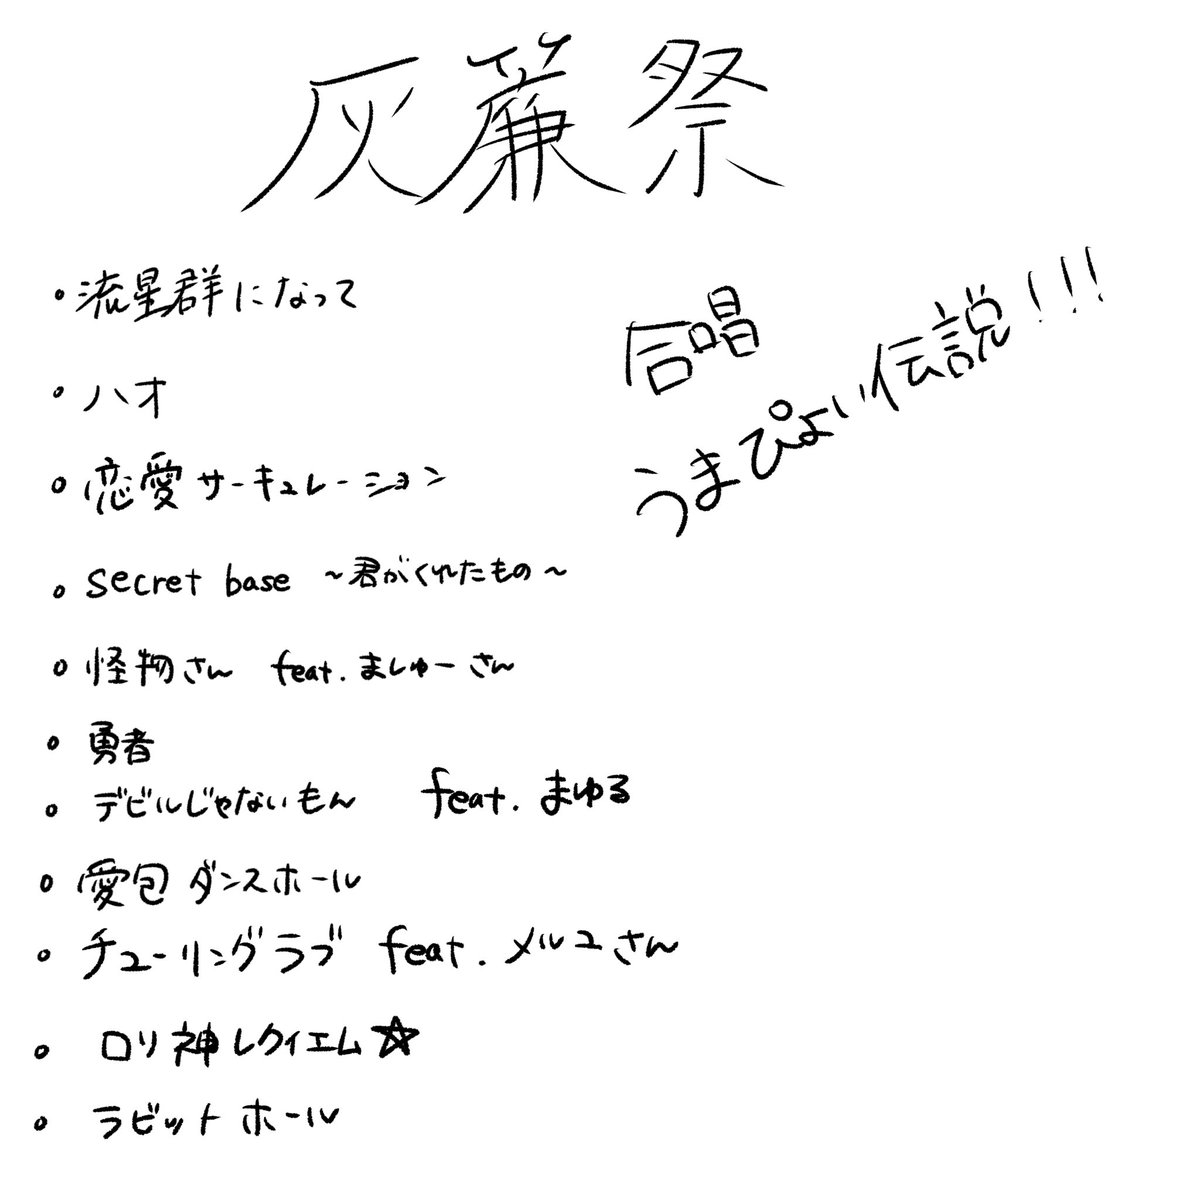 灰簾祭
・流星群になって
・ハオ
・恋愛サーキュレーション
・secret base ～君がくれたもの～
・怪物さん feat.ましゅーさん
・勇者
・デビルじゃないもん feat.まゆる
・愛包ダンスホール
・チューリングラブ feat.メルユさん
・ロリ神レクイエム☆
・ラビットホール
合唱
うまぴょい伝説!!!